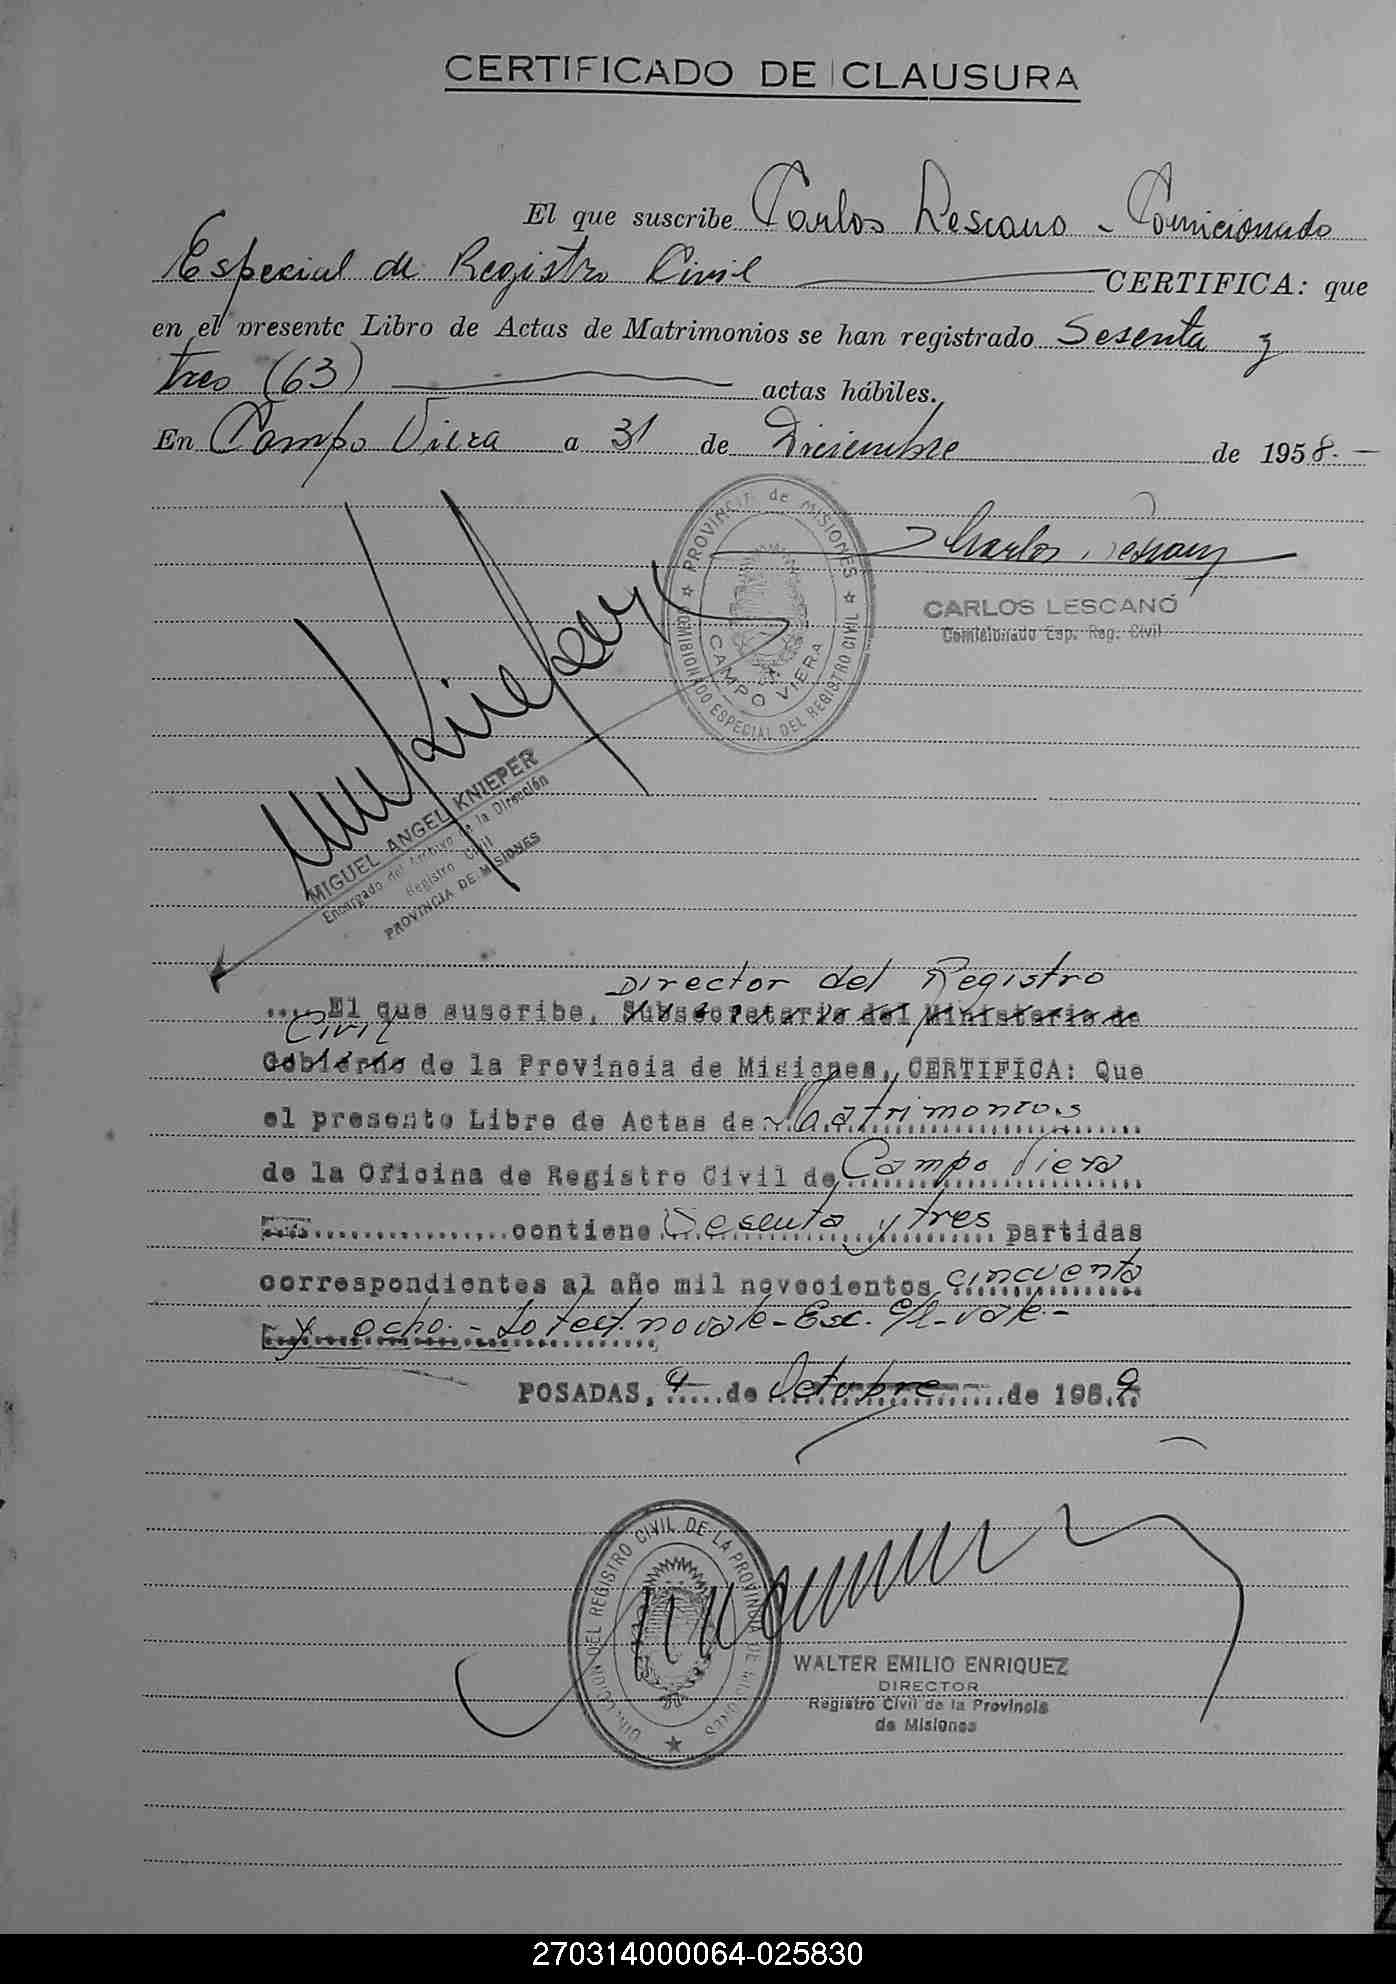 CERTIFICADO DE CLAUSURA
El que suscribe Carlos Lescano - Comicionado
Especial de Registro Civil CERTIFICA: que
en el presente Libro de Actas de Matrimonios se han registrado Sesenta y
tres (63) actas hábiles.
En Campo Viera a 31 de Diciembre de 1958.-
PROVINCIA de MISIONES
COMISIONADO ESPECIAL DEL REGISTRO CIVIL
CAMPO VIERA
Carlos Lescano
CARLOS LESCANO
Comisionado Esp. Reg. Civil
MIGUEL ANGEL KNIEPER
Encargado del Archivo de la Dirección
Registro Civil
PROVINCIA DE MISIONES
Director del Registro
.... El que suscribe, Subsecretario del Ministerio de
Civil
Gobierno de la Provincia de Misiones, CERTIFICA: Que
el presente Libro de Actas de Matrimonios
de la Oficina de Registro Civil de Campo Viera
contiene Sesenta y tres partidas
correspondientes al año mil novecientos cincuenta
y ocho.- Lo test. no vale- Esc. e/l- vale.-
POSADAS, 9 de Octubre de 1959
DIRECCION DEL REGISTRO CIVIL DE LA PROVINCIA DE MISIONES
WALTER EMILIO ENRIQUEZ
DIRECTOR
Registro Civil de la Provincia
de Misiones
270314000064-025830